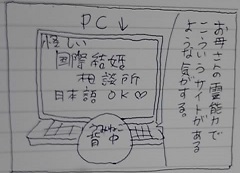 お母さんの霊能力で
こういうサイトがある
ような気がする。
PC↓
怪しい
国際結婚
相談所
日本語OK♡
うみねこ
背中